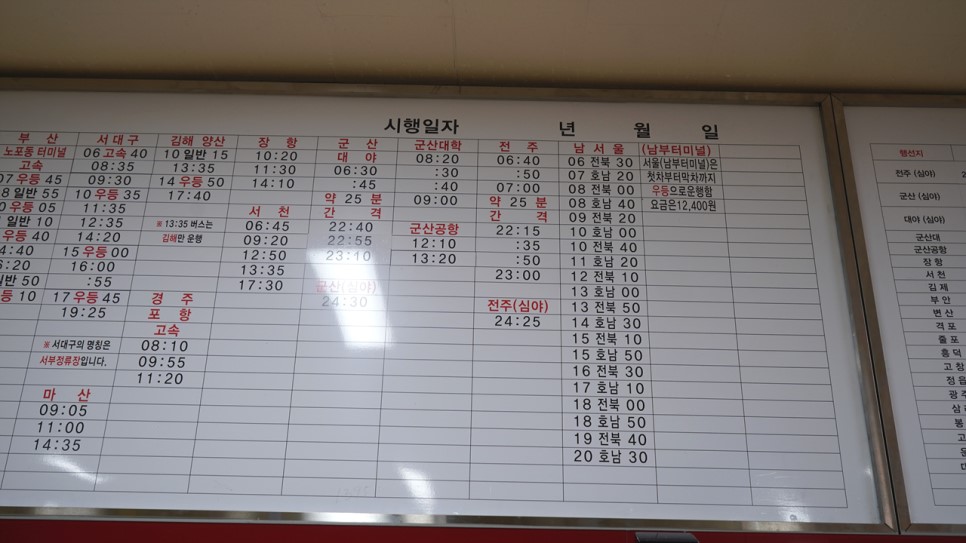 시행일자 년 월 일
부 산
노포동 터미널
고속
07 우등 45
8 일반 55
우등 05
일반 10
우등 40
4:40
:20
일반 50
등 10
서대구
06 고속 40
08:35
09:30
10 우등 35
11:35
12:35
14:20
15 우등 00
16:00
:55
17 우등 45
19:25
※ 서대구의 명칭은
서부정류장입니다.
마 산
09:05
11:00
14:35
김해 양산
10 일반 15
13:35
14 우등 50
17:40
※ 13:35 버스는
김해만 운행
경 주
포 항
고속
08:10
09:55
11:20
장 항
10:20
11:30
14:10
서 천
06:45
09:20
12:50
13:35
17:30
군 산
대 야
06:30
:45
약 25 분
간 격
22:40
22:55
23:10
군산(심야)
24:30
군산대학
08:20
:30
:40
09:00
군산공항
12:10
13:20
전 주
06:40
:50
07:00
약 25 분
간 격
22:15
:35
:50
23:00
전주(심야)
24:25
남 서 울
06 전북 30
07 호남 20
08 전북 00
08 호남 40
09 전북 20
10 호남 00
10 전북 40
11 호남 20
12 전북 10
13 호남 00
13 전북 50
14 호남 30
15 전북 10
15 호남 50
16 전북 30
17 호남 10
18 전북 00
18 호남 50
19 전북 40
20 호남 30
(남부터미널)
서울(남부터미널)은
첫차부터막차까지
우등으로운행함
요금은12,400원
행선지
전주 (심야)
군산 (심야)
대야 (심야)
군산대
군산공항
장 항
서 천
김 제
부 안
변 산
격 포
줄 포
흥 덕
고 창
정 읍
광 주